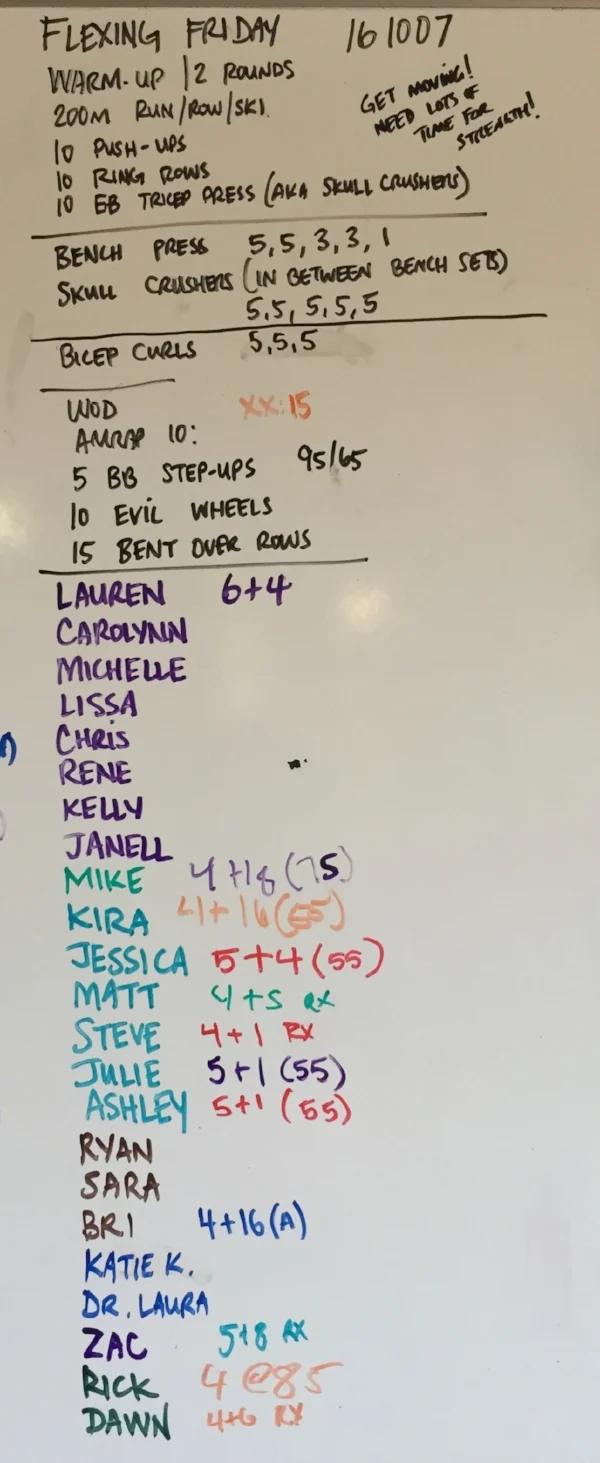 FLEXING FRIDAY 161007
WARM-UP | 2 ROUNDS
200M RUN/ROW/SKI.
GET MOVING!
NEED LOTS OF
TIME FOR
STRENGTH!
10 PUSH-UPS
10 RING ROWS
10 EB TRICEP PRESS (AKA SKULL CRUSHERS)
BENCH PRESS 5,5,3,3,1
SKULL CRUSHERS (IN BETWEEN BENCH SETS)
5,5,5,5,5
BICEP CURLS 5,5,5
WOD XX:15
AMRAP 10:
5 BB STEP-UPS 95/65
10 EVIL WHEELS
15 BENT OVER ROWS
LAUREN 6+4
CAROLYNN
MICHELLE
LISSA
CHRIS
RENE
KELLY
JANELL
MIKE 4+18 (75)
KIRA 4+16 (55)
JESSICA 5+4 (55)
MATT 4+5 RX
STEVE 4+1 RX
JULIE 5+1 (55)
ASHLEY 5+1 (55)
RYAN
SARA
BRI 4+16 (A)
KATIE K.
DR. LAURA
ZAC 5+8 RX
RICK 4 @85
DAWN 4+6 RX